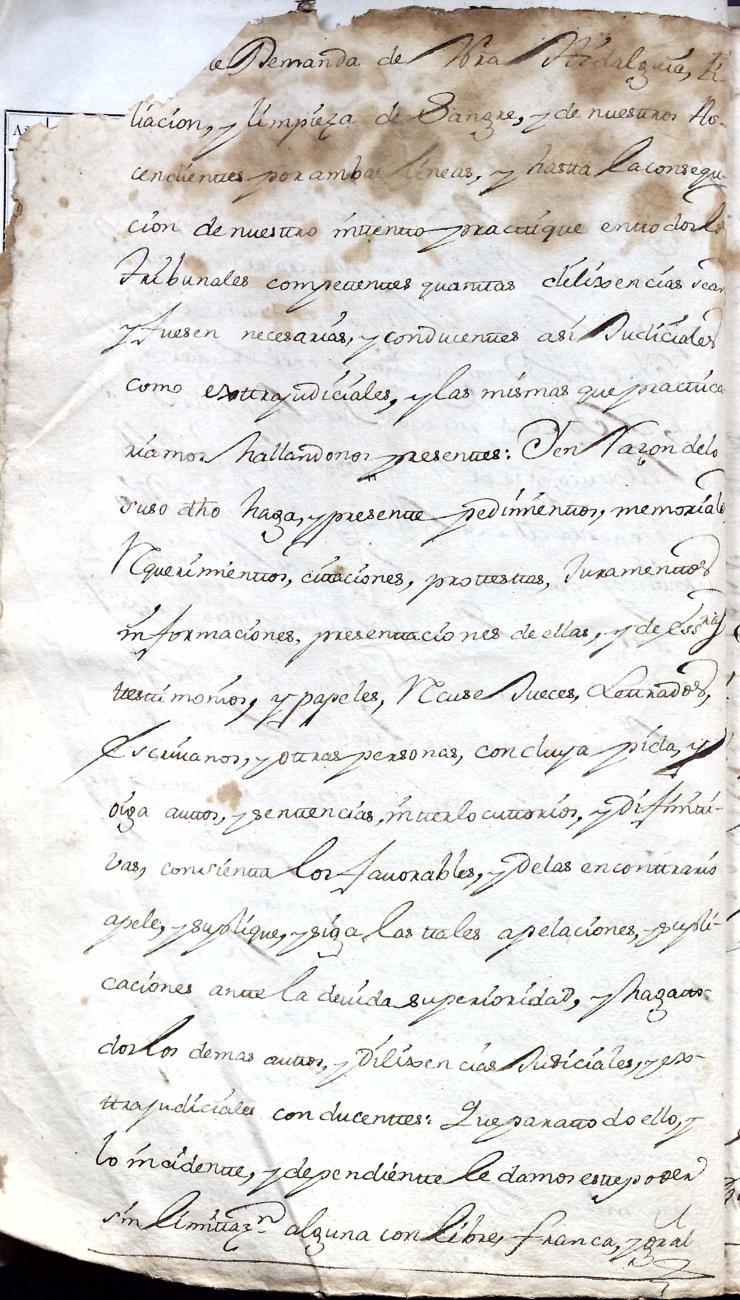 de Demanda de Nra Hidalguia, fi-
liacion, y limpieza de Sangre, y de nuestros As-
cendientes por ambas lineas, y hasta la consequ-
cion de nuestro intento practique en todos los
Tribunales competentes quantas dilixencias sean
y fuesen necesarias, y conducentes asi Judiciales
como extrajudiciales, y las mismas que practica
riamos hallandonos presentes: Y en Razon de lo
suso dho haga, y presente pedimentos, memoriales
Requerimientos, citaciones, protestas, Juramentos
informaciones, presentaciones de ellas, y de Essras
testimonios, y papeles, Recuse Jueces, Letrados,
Escrivanos, y otras personas, concluya pida, y
oiga autos, y sentencias, interlocuttorios, y Difiniti-
vas, consienta los favorables, y Delas en contrario
apele, y suplique, y siga las tales apelaciones, y supli-
caciones ante la devida superioridad, y haga to-
dos los demas autos, y Dilixencias Judiciales, y ex-
trajudiciales conducentes: Que para todo ello, y
lo incidente, y dependiente le damos este poder
sin limitazn. alguna con libre, franca, y gral